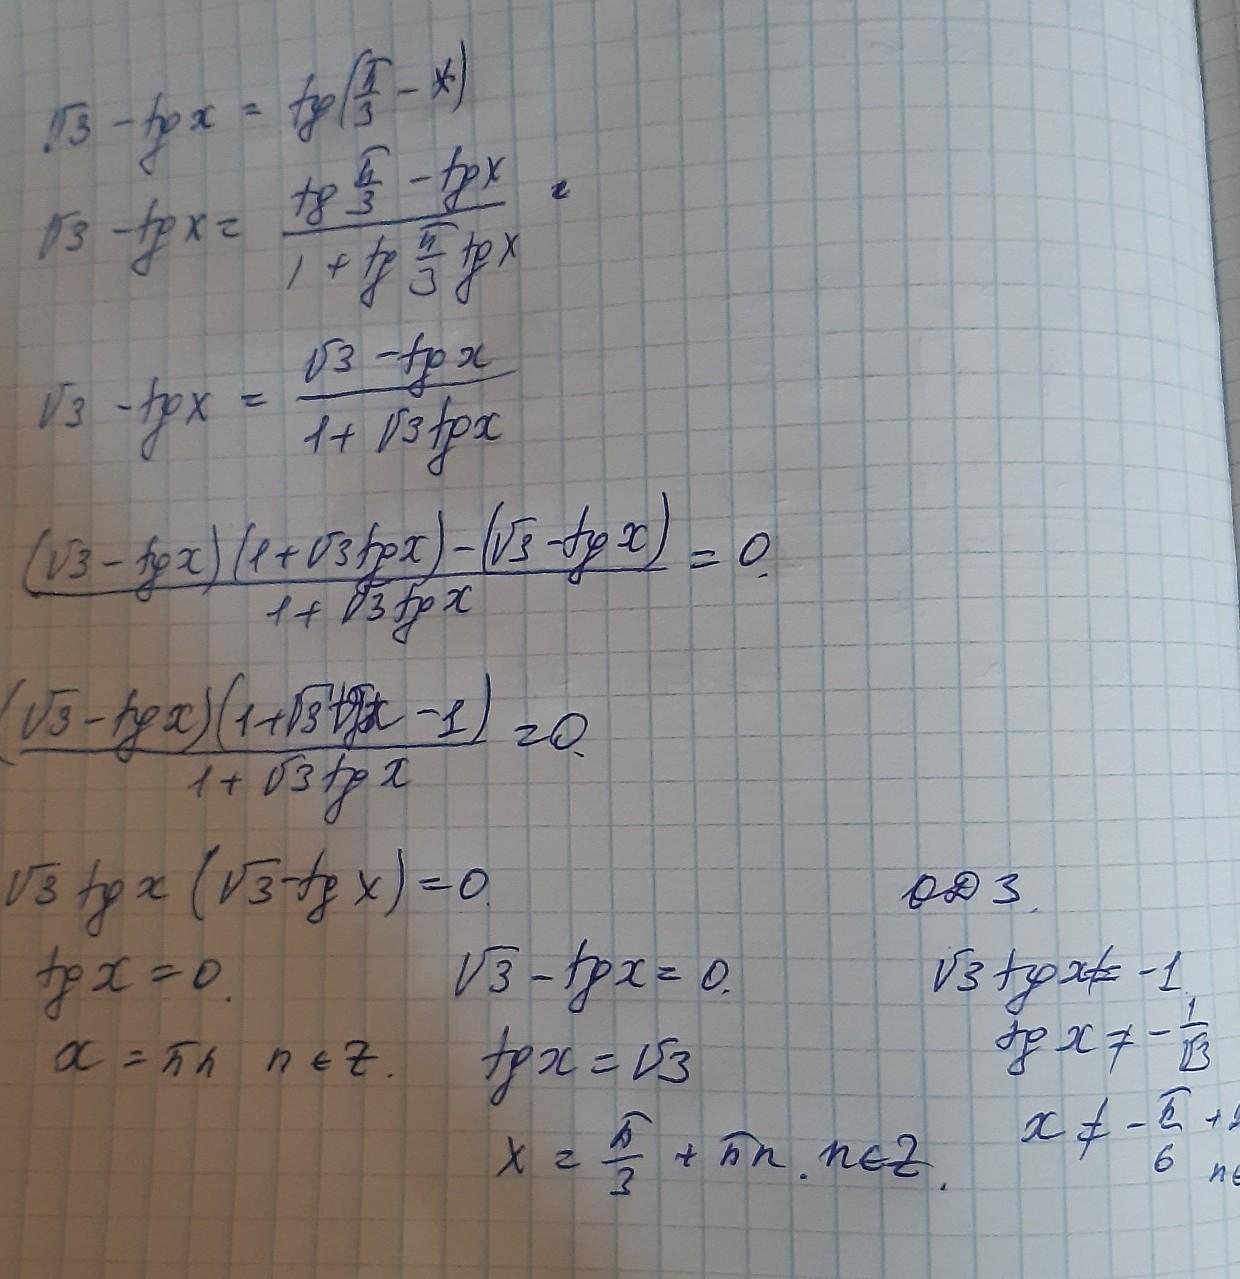 √3 - tg x = tg(π/3 - x)
√3 - tg x = (tg π/3 - tg x)/(1 + tg π/3 tg x) =
√3 - tg x = (√3 - tg x)/(1 + √3 tg x)
((√3 - tg x)(1 + √3 tg x) - (√3 - tg x))/(1 + √3 tg x) = 0.
((√3 - tg x)(1 + √3 tg x - 1))/(1 + √3 tg x) = 0.
√3 tg x (√3 - tg x) = 0. ОДЗ.
tg x = 0. √3 - tg x = 0. √3 tg x ≠ -1.
x = πn n ∈ Z. tg x = √3 tg x ≠ -1/√3
x = π/3 + πn. n ∈ Z. x ≠ -π/6 +
n ∈